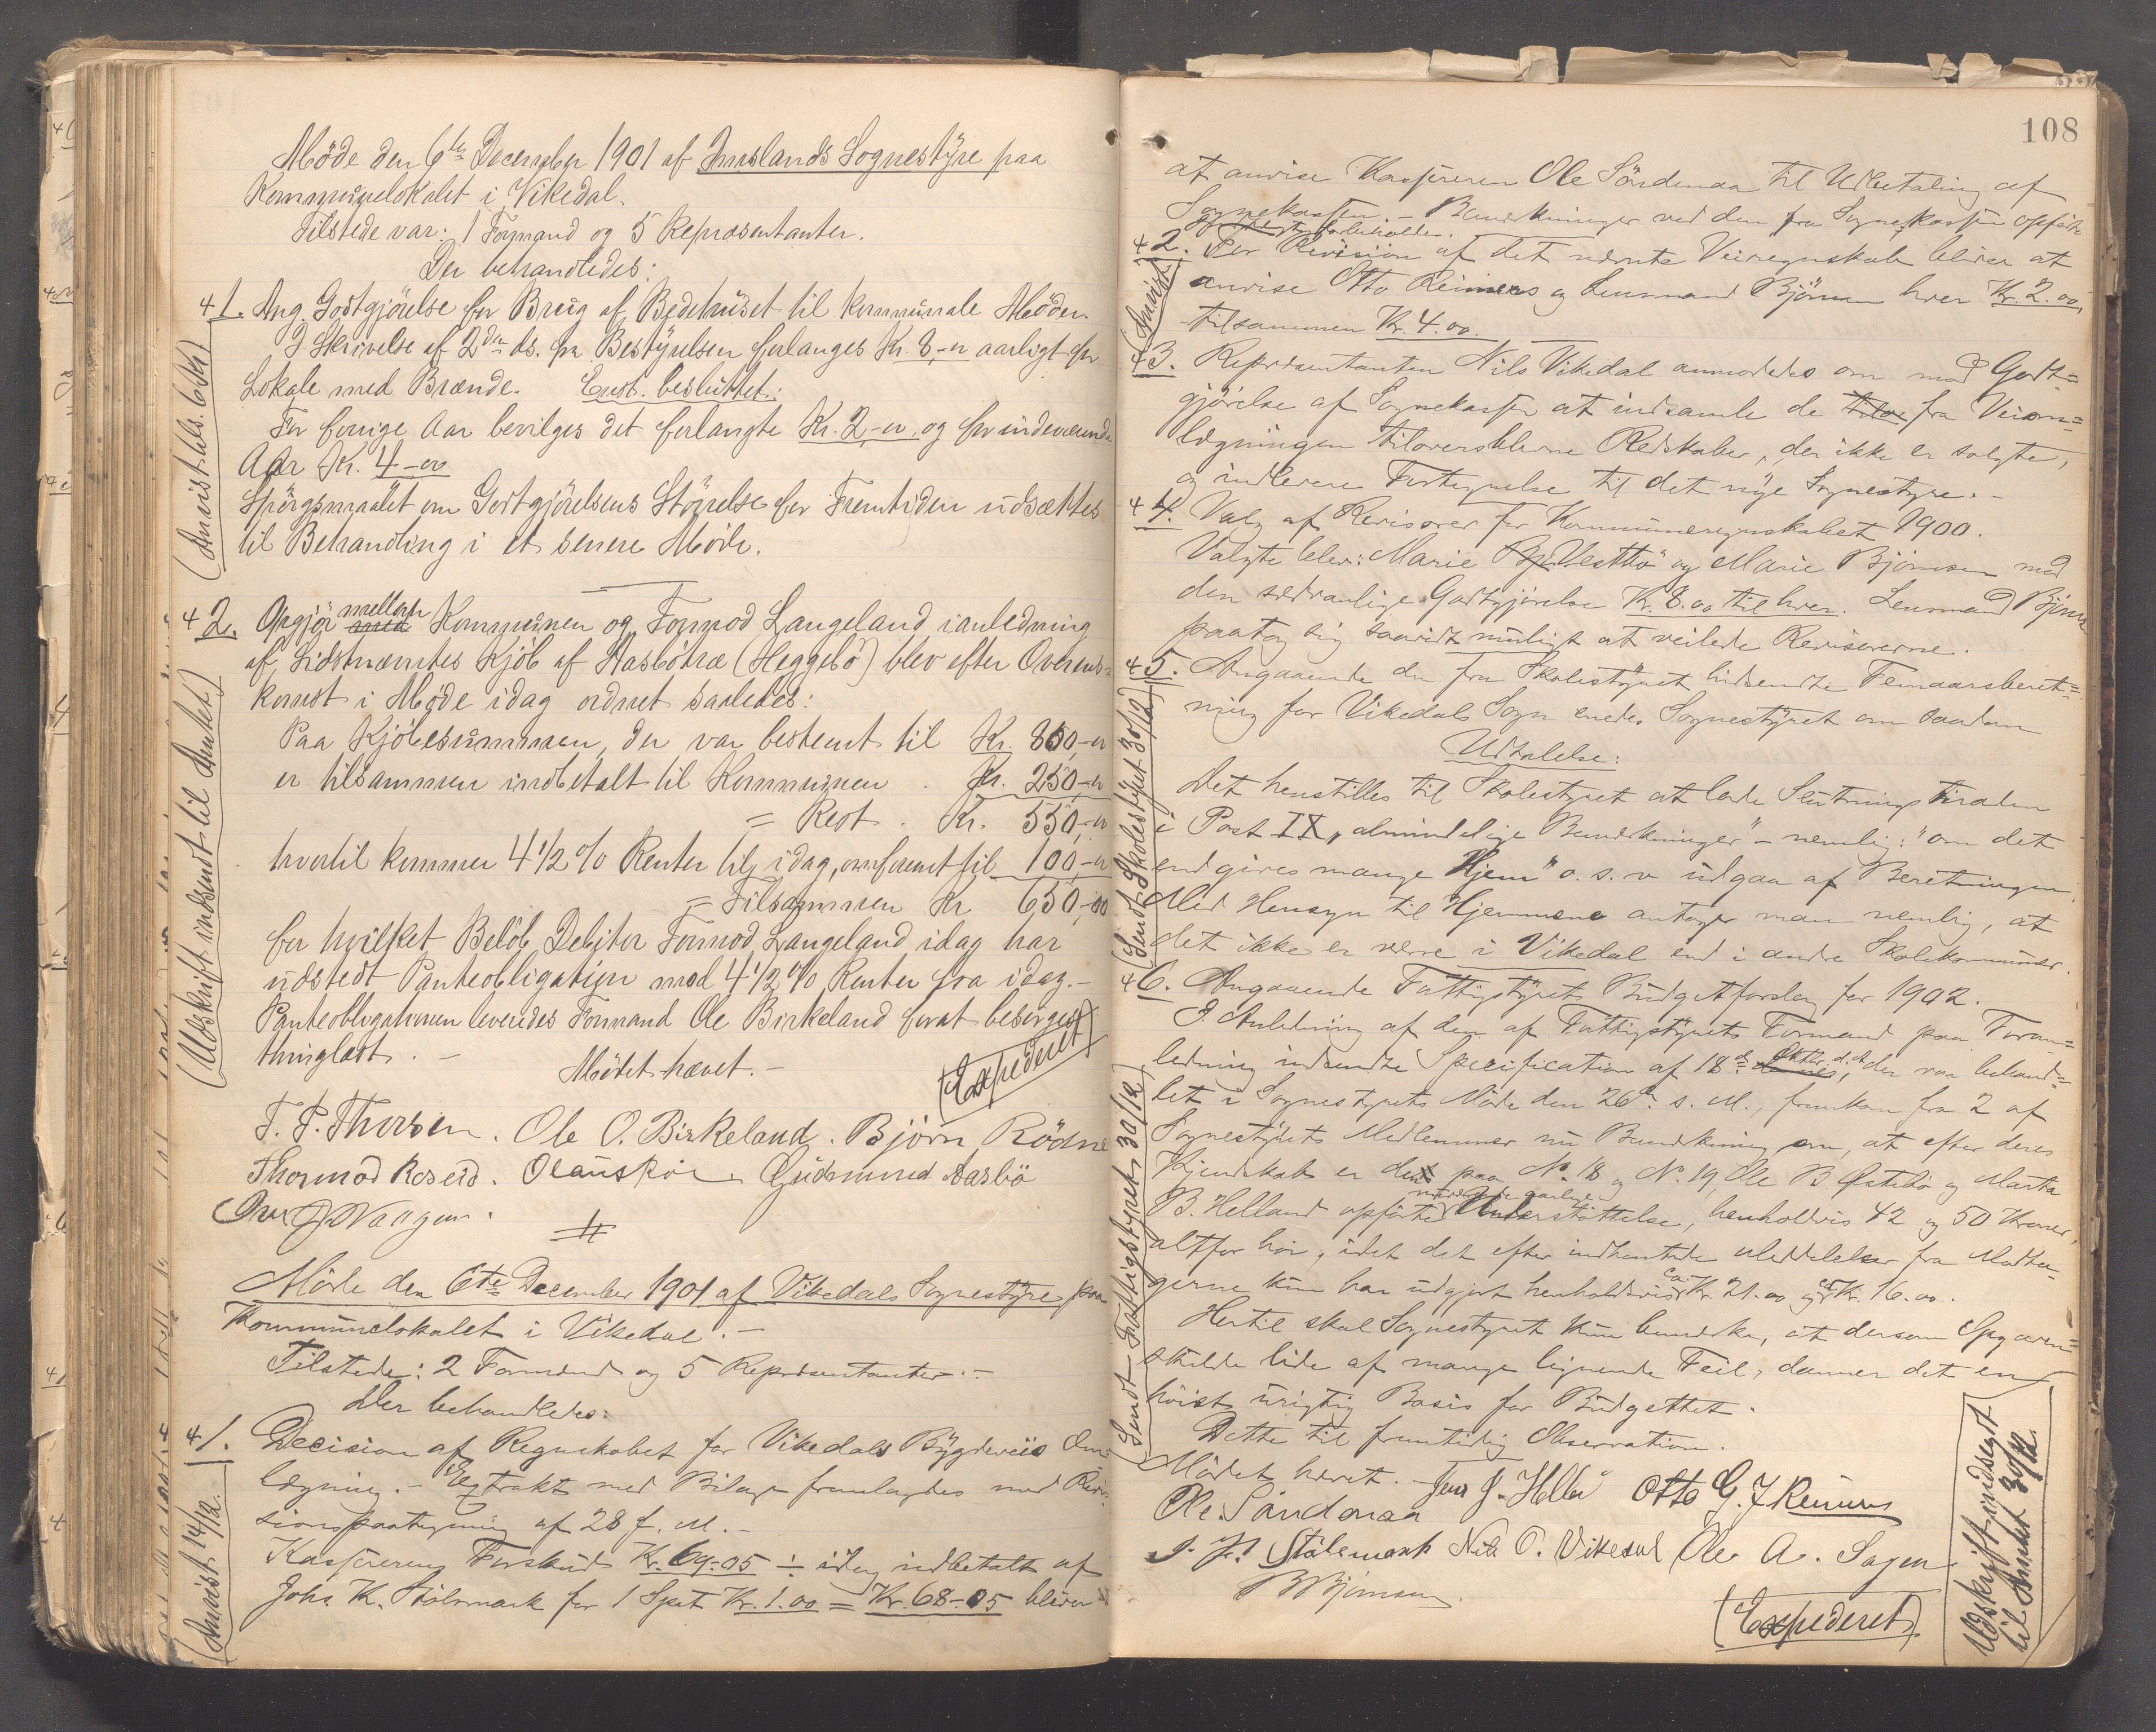 Møde den 6te December 1901 af Imslands Sognestÿre paa
Kommunelokalet i Vikedal.
Tilstede var: 1 Formand og 5 Repræsentanter.
Der behandledes:
+1. Ang. Godtgjørelse for Brug af Bedehuset til kommunale Møder.
I Skrivelse af 2den ds. fra Bestÿrelsen forlanges Kr. 8,-00 aarligt for
Lokale med Brænde. Enst. besluttet:
For forrige Aar bevilges det forlangte Kr. 2,-00 og for indeværende
Aar Kr. 4-00
Spørgsmaalet om Godtgjørelsens Størrelse for Fremtiden udsættes
til Behandling i et senere Møde.
(Anvist hdls. 6 Kr)
+2. Opgjør mellem med Kommunen og Tormod Langeland i anledning
af sidstnævntes Kjøb af Aasbøtræ (Heggebø) blev efter Overens-
komst i Møde idag ordnet saaledes:
Paa Kjøbesummen, der var bestemt til Kr. 800,-00
er tilsammen indbetalt til Kommunen . Kr. 250,-00
= Rest . Kr. 550,-00
hvortil kommer 4 1/2 % Renter til idag, omforenet til 100,-00
= Tilsammen Kr 650,-00
for hvilket Beløb Debitor Tormod Langeland idag har
udstedt Panteobligation med 4 1/2 % Renter fra idag.-
Panteobligationen leveredes Formand Ole Birkeland forat besørges
thinglæst. -
Mødet hævet.-
(Expederet)
(Udskrift indsendt til Amtet)
T. P. Thorsen. Ole O. Birkeland. Bjørn Rødne
Thormod Roseid. Gudmund Aasbø
Møde den 6te December 1901 af Vikedals Sognestyre paa
Kommunelokalet i Vikedal.-
Tilstede: 2 Formænd og 5 Repræsentanter.-
Der behandledes:
+1. Decision af Regnskabet for Vikedals Bÿgdeveis Om-
lægning.- Extrakt med Bilage fremlagdes med Revi-
sionspaategning af 28 f. M.-
Kassererens Forskud Kr. 69-05 ÷ idag indbetalt af
Johs K. Stølsmark for 1 Spet Kr. 1.00 = Kr. 68-05 bliver
(Anvist 14/12.
108
at anvise Kassereren Ole Söndenaa til Udbetaling af
Sognekassen.- Bemærkninger ved den fra Sognekassen opførte
forbeholdes.
+2. For Revision af det nævnte Veiregnskab bliver at
anvise Otto Reimers og Lensmand Bjørnsen hver Kr 2.00,
tilsammen Kr. 4.00.
(Anvist)
+3. Repræsentanten Nils Vikedal anmodedes om mod Godt=
gjørelse af Sognekassen at indsamle de fra Veiom=
lægningen tiloversblevne Redskaber, der ikke er solgte,
og indlevere Fortegnelse til det nye Sognestyre.-
+4. Valg af Revisorer for Kommuneregnskabet 1900.
Valgte blev: Marie Vestbø og Marie Bjørnsen med
den sædvanlige Godtgjørelse Kr. 8.00 til hver. Lensmand Bjørnsen
paatog sig saavidt muligt at veilede Revisorerne.
+5. Angaaende den fra Skolestÿret hidsendte Femaarsberet=
ning for Vikedals Sogn enedes Sognestÿret om saadan
Udtalelse:
Det henstilles til Skolestyret at lade Slutningstiraden
i Post IX, "almindelige Bemærkninger" - nemlig: "om det
end gives mange Hjem" o. s. v udgaa af Beretningen.
Med Hensyn til Hjemmene antager man nemlig, at
det ikke er værre i Vikedal end i andre Skolekommuner.
(Sendt Skolestÿret 30/12)
+6. Angaaende Fattigstÿrets Budgetforslag for 1902.
I Anledning af den af Fattigstÿrets Formand paa Foran=
ledning indsendte Specification af 18de Oktbr. d. A. der var behand=
let i Sognestyrets Møde den 26de s. M., fremkom fra 2 af
Sognestyrets Medlemmer nu Bemærkning om, at efter deres
Kjendskab er den paa No. 18 og No. 19, Ole B. Østebø og Marta
B. Helland opførte nuværende aarlige Understøttelse, henholdvis 42 og 50 Kroner,
altfor høi, idet det efter indhentede Meddelelser fra Modta=
gerne kun har udgjort henholdsvis ca Kr. 21.00 og ca Kr. 16.00.
Hertil skal Sognestyret kun bemærke, at dersom Opgaven
skulde lide af mange lignende Feil, danner det en
høist urigtig Basis for Budgettet.
Dette til fremtidig Observation.
Mødet hævet.-
(Sendt Fattigstyret 30/12)
Otto G. J Reimers
Ole Söndenaa
Stølsmark Nils O. Vikedal Ole A. Sagen
B Bjørnsen.
(Expederet)
Udskrift indsendt
til Amtet 30/12.